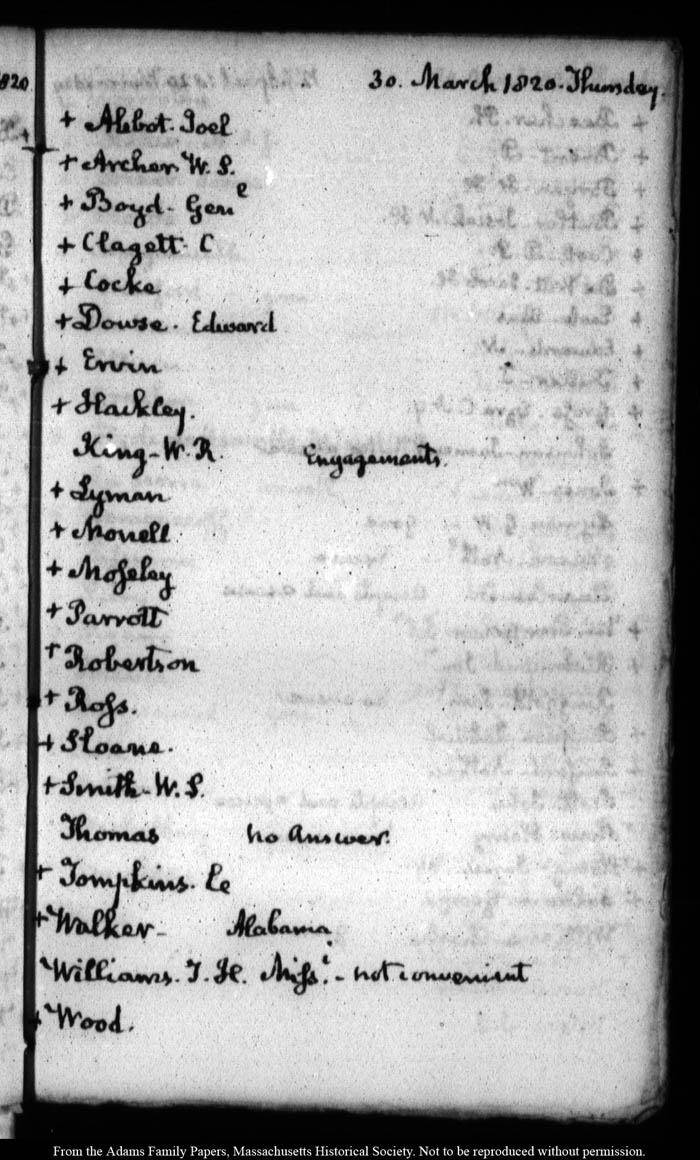 1820.
30. March 1820. Thursday.
+ Abbot. Joel
+ Archer W. S.
+ Boyd. Gen^e
+ Clagett. C
+ Cocke
+ Dowse. Edward
+ Ervin
+ Hackley.
King - W. R. Engagements.
+ Lyman
+ Monell
+ Moſeley
+ Parrott
+ Robertson
+ Roſs.
+ Sloane.
+ Smith - W. S.
Thomas no Answer.
+ Tompkins.
+ Walker - Alabama.
Williams. T. H. Miſs^i. - not convenient
+ Wood.
From the Adams Family Papers, Massachusetts Historical Society. Not to be reproduced without permission.